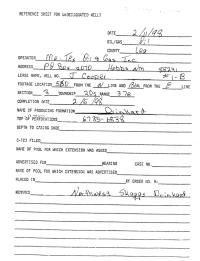 REFERENCE SHEET FOR UNDESIGNATED WELLS
DATE 2/11/98
OIL/GAS Oil
COUNTY Lea
OPERATOR Me-Tex Oil & Gas Inc
ADDRESS PO Box 2070 Hobbs NM 88241
LEASE NAME, WELL NO. J Cooper #1-B
FOOTAGE LOCATION 580 FROM THE N LINE AND FROM THE E LINE
SECTION 3 TOWNSHIP 20s RANGE 37e
COMPLETION DATE 2/5/98
NAME OF PRODUCING FORMATION Drinkard
TOP OF PERFORATIONS 6785-6838
DEPTH TO CASING SHOE
C-123 FILED
NAME OF POOL FOR WHICH EXTENSION WAS ASKED
ADVERTISED FOR HEARING CASE NO.
NAME OF POOL FOR WHICH EXTENSION WAS ADVERTISED
PLACED IN BY ORDER NO. R-
REMARKS Northwest Skaggs Drinkard